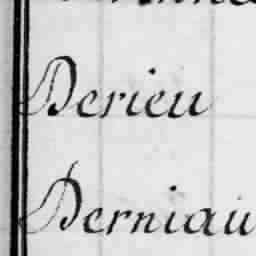 Derieu
Derniau